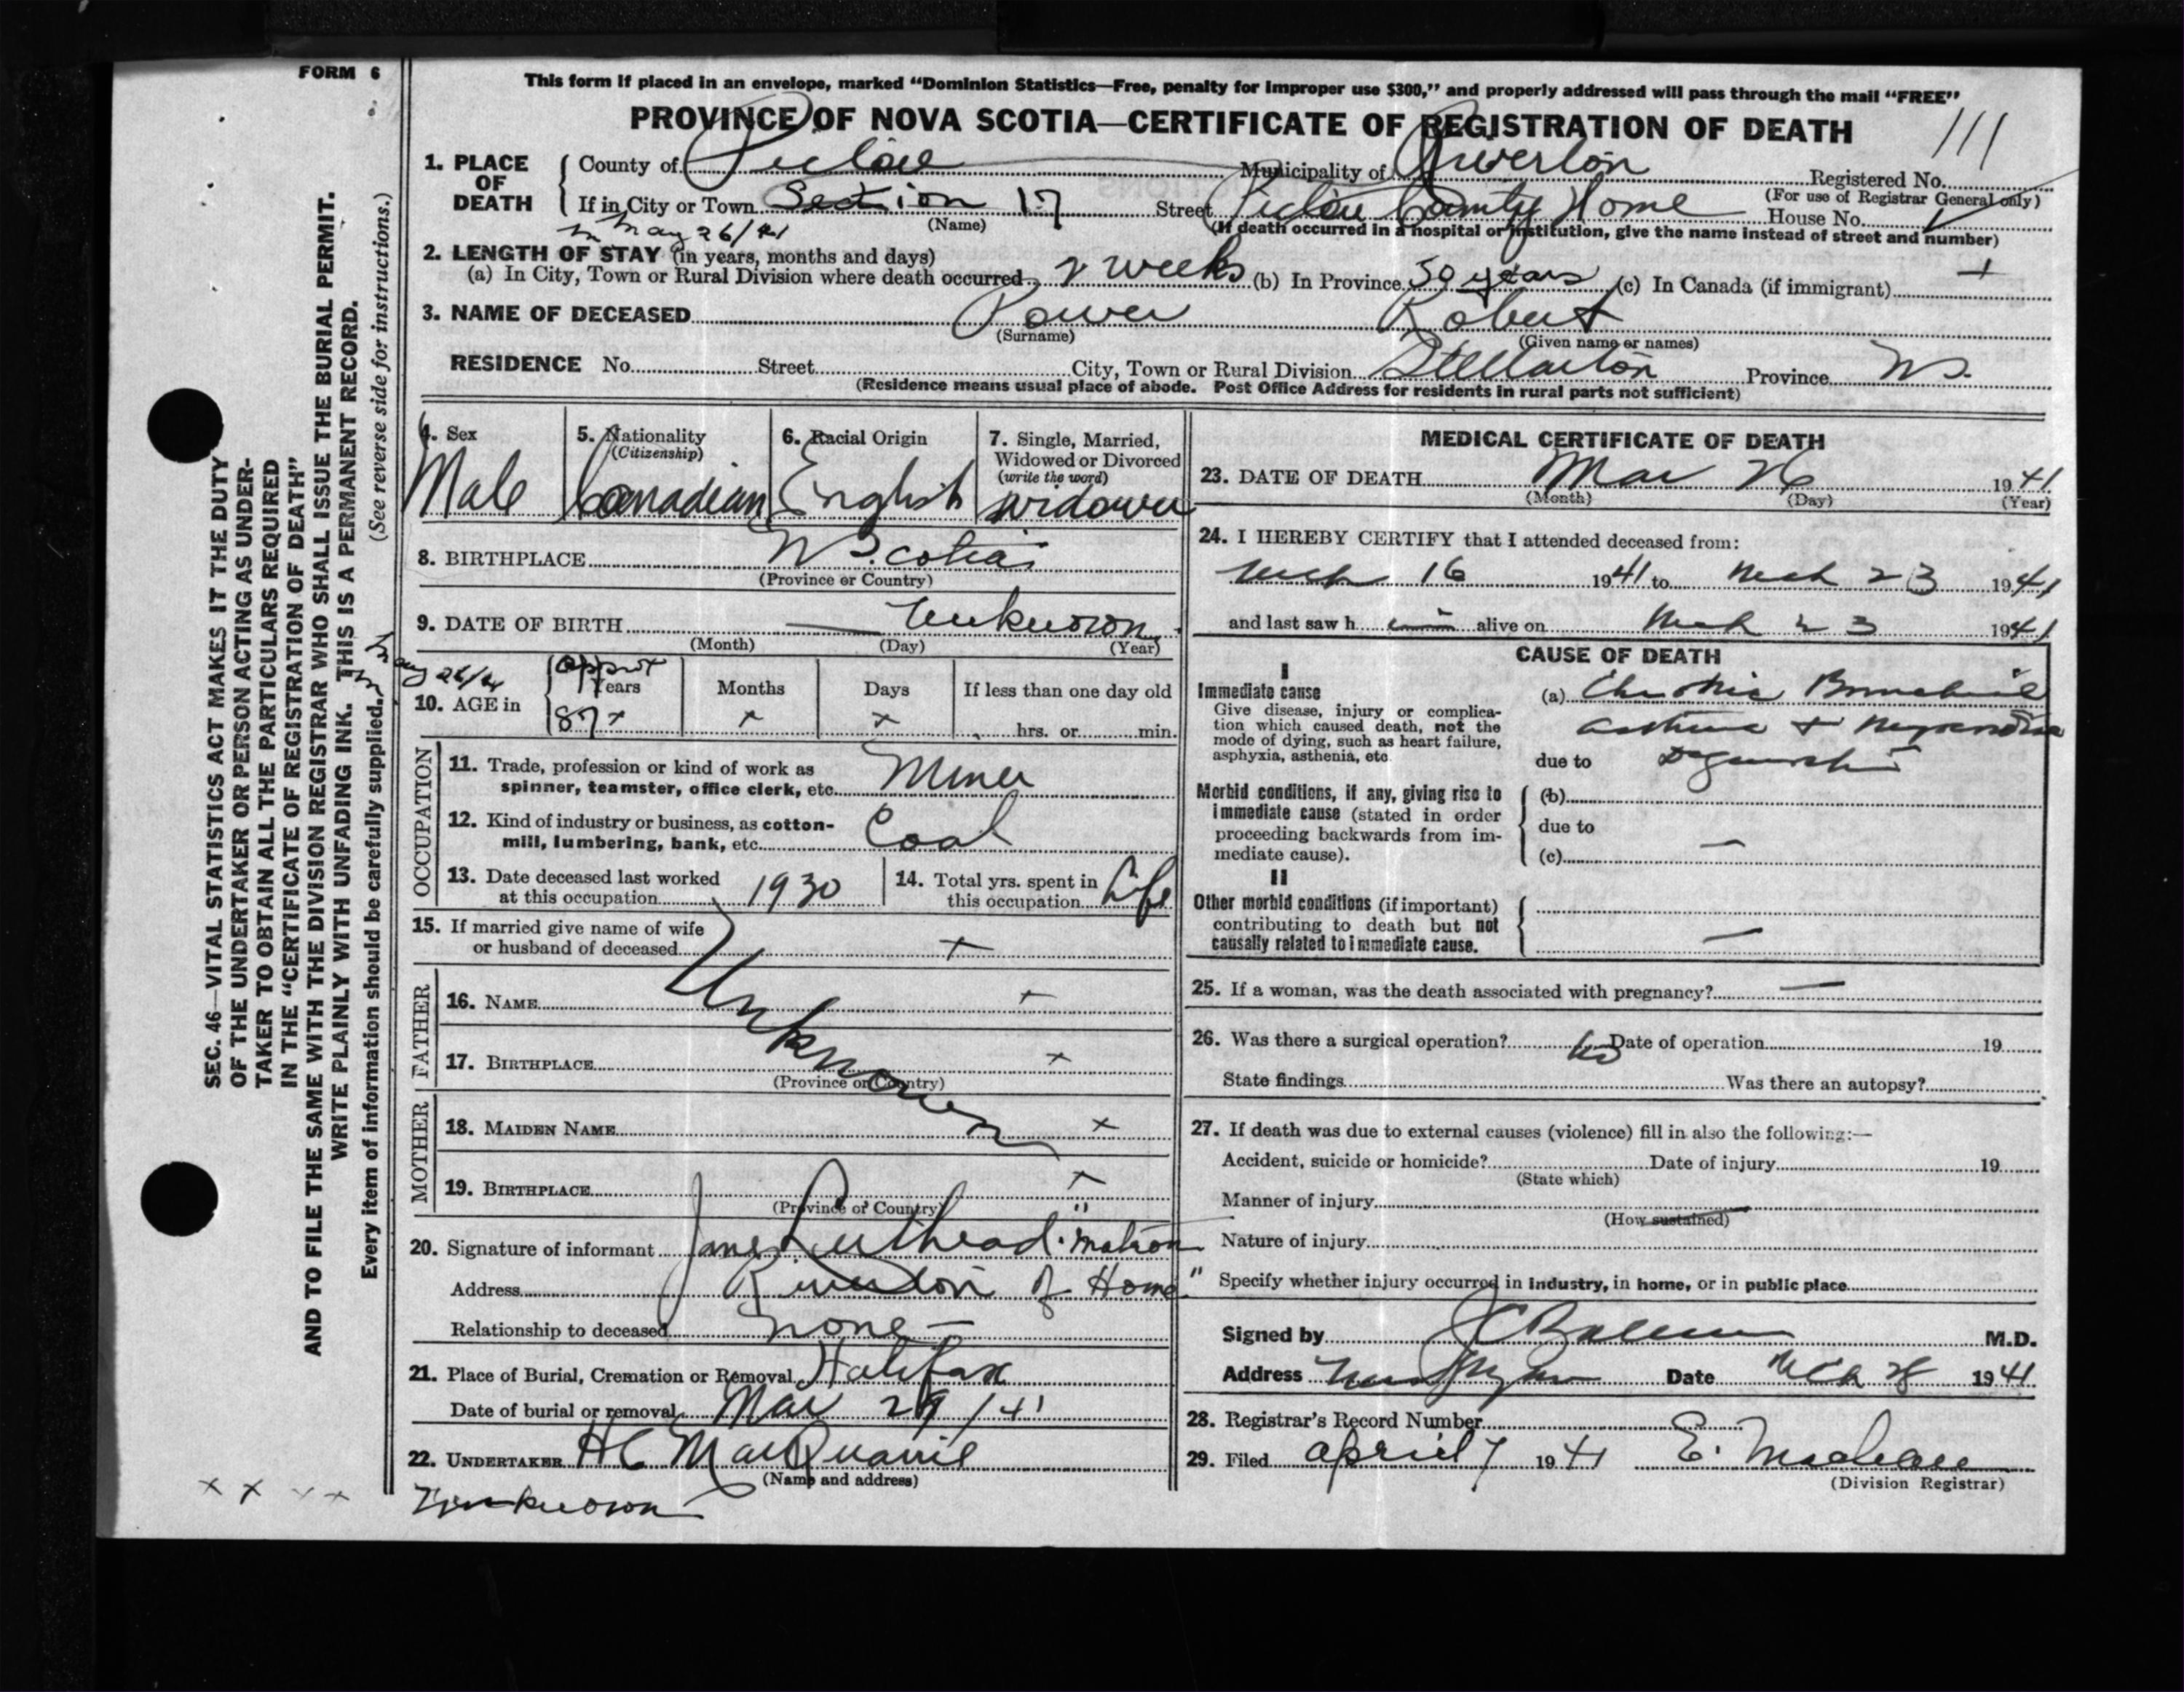 FORM 6
This form if placed in an envelope, marked “Dominion Statistics—Free, penalty for improper use $300,” and properly addressed will pass through the mail “FREE”
PROVINCE OF NOVA SCOTIA—CERTIFICATE OF REGISTRATION OF DEATH
111
1. PLACE OF DEATH
County of Pictou Municipality of Riverton Registered No.
(For use of Registrar General only)
If in City or Town Section 17 Street Pictou County Home House No.
(Name) (If death occurred in a hospital or institution, give the name instead of street and number)
May 26/41
2. LENGTH OF STAY (in years, months and days)
(a) In City, Town or Rural Division where death occurred 2 weeks (b) In Province 50 years (c) In Canada (if immigrant)
3. NAME OF DECEASED Power Robert
(Surname) (Given name or names)
RESIDENCE No. Street City, Town or Rural Division Stellarton Province NS.
(Residence means usual place of abode. Post Office Address for residents in rural parts not sufficient)
4. Sex
Male
5. Nationality
(Citizenship)
Canadian
6. Racial Origin
English
7. Single, Married, Widowed or Divorced
(write the word)
widower
8. BIRTHPLACE N Scotia
(Province or Country)
9. DATE OF BIRTH Unknown
(Month) (Day) (Year)
May 26/41
10. AGE in
approx
Years Months Days If less than one day old
87 x x x hrs. or min.
OCCUPATION
11. Trade, profession or kind of work as
spinner, teamster, office clerk, etc. Miner
12. Kind of industry or business, as cotton-
mill, lumbering, bank, etc. Coal
13. Date deceased last worked
at this occupation 1930
14. Total yrs. spent in
this occupation Life
15. If married give name of wife
or husband of deceased x
Unknown
FATHER
16. NAME x
17. BIRTHPLACE x
(Province or Country)
MOTHER
18. MAIDEN NAME x
19. BIRTHPLACE x
(Province or Country)
20. Signature of informant "Matron
Address Riverton of Home"
Relationship to deceased none
21. Place of Burial, Cremation or Removal Halifax
Date of burial or removal Mar 29/41
22. UNDERTAKER H C MacQuarrie
(Name and address)
Unknown
x x x x
MEDICAL CERTIFICATE OF DEATH
23. DATE OF DEATH Mar 26 1941
(Month) (Day) (Year)
24. I HEREBY CERTIFY that I attended deceased from:
Mch 16 1941 to Mch 23 1941
and last saw h im alive on Mch 23 1941
CAUSE OF DEATH
I
Immediate cause
Give disease, injury or complica-
tion which caused death, not the
mode of dying, such as heart failure,
asphyxia, asthenia, etc
(a) Chronic Bronchial
asthma + Myocardial
due to
Morbid conditions, if any, giving rise to
immediate cause (stated in order
proceeding backwards from im-
mediate cause).
(b)
due to
(c) —
II
Other morbid conditions (if important)
contributing to death but not
causally related to immediate cause.
—
25. If a woman, was the death associated with pregnancy? —
26. Was there a surgical operation? No Date of operation 19
State findings Was there an autopsy?
27. If death was due to external causes (violence) fill in also the following:—
Accident, suicide or homicide? Date of injury 19
(State which)
Manner of injury
(How sustained)
Nature of injury
Specify whether injury occurred in industry, in home, or in public place
Signed by M.D.
Address Date Mch 28 1941
28. Registrar's Record Number
29. Filed April 7 1941
(Division Registrar)
SEC. 46—VITAL STATISTICS ACT MAKES IT THE DUTY
OF THE UNDERTAKER OR PERSON ACTING AS UNDER-
TAKER TO OBTAIN ALL THE PARTICULARS REQUIRED
IN THE “CERTIFICATE OF REGISTRATION OF DEATH”
AND TO FILE THE SAME WITH THE DIVISION REGISTRAR WHO SHALL ISSUE THE BURIAL PERMIT.
WRITE PLAINLY WITH UNFADING INK. THIS IS A PERMANENT RECORD.
Every item of information should be carefully supplied. (See reverse side for instructions.)